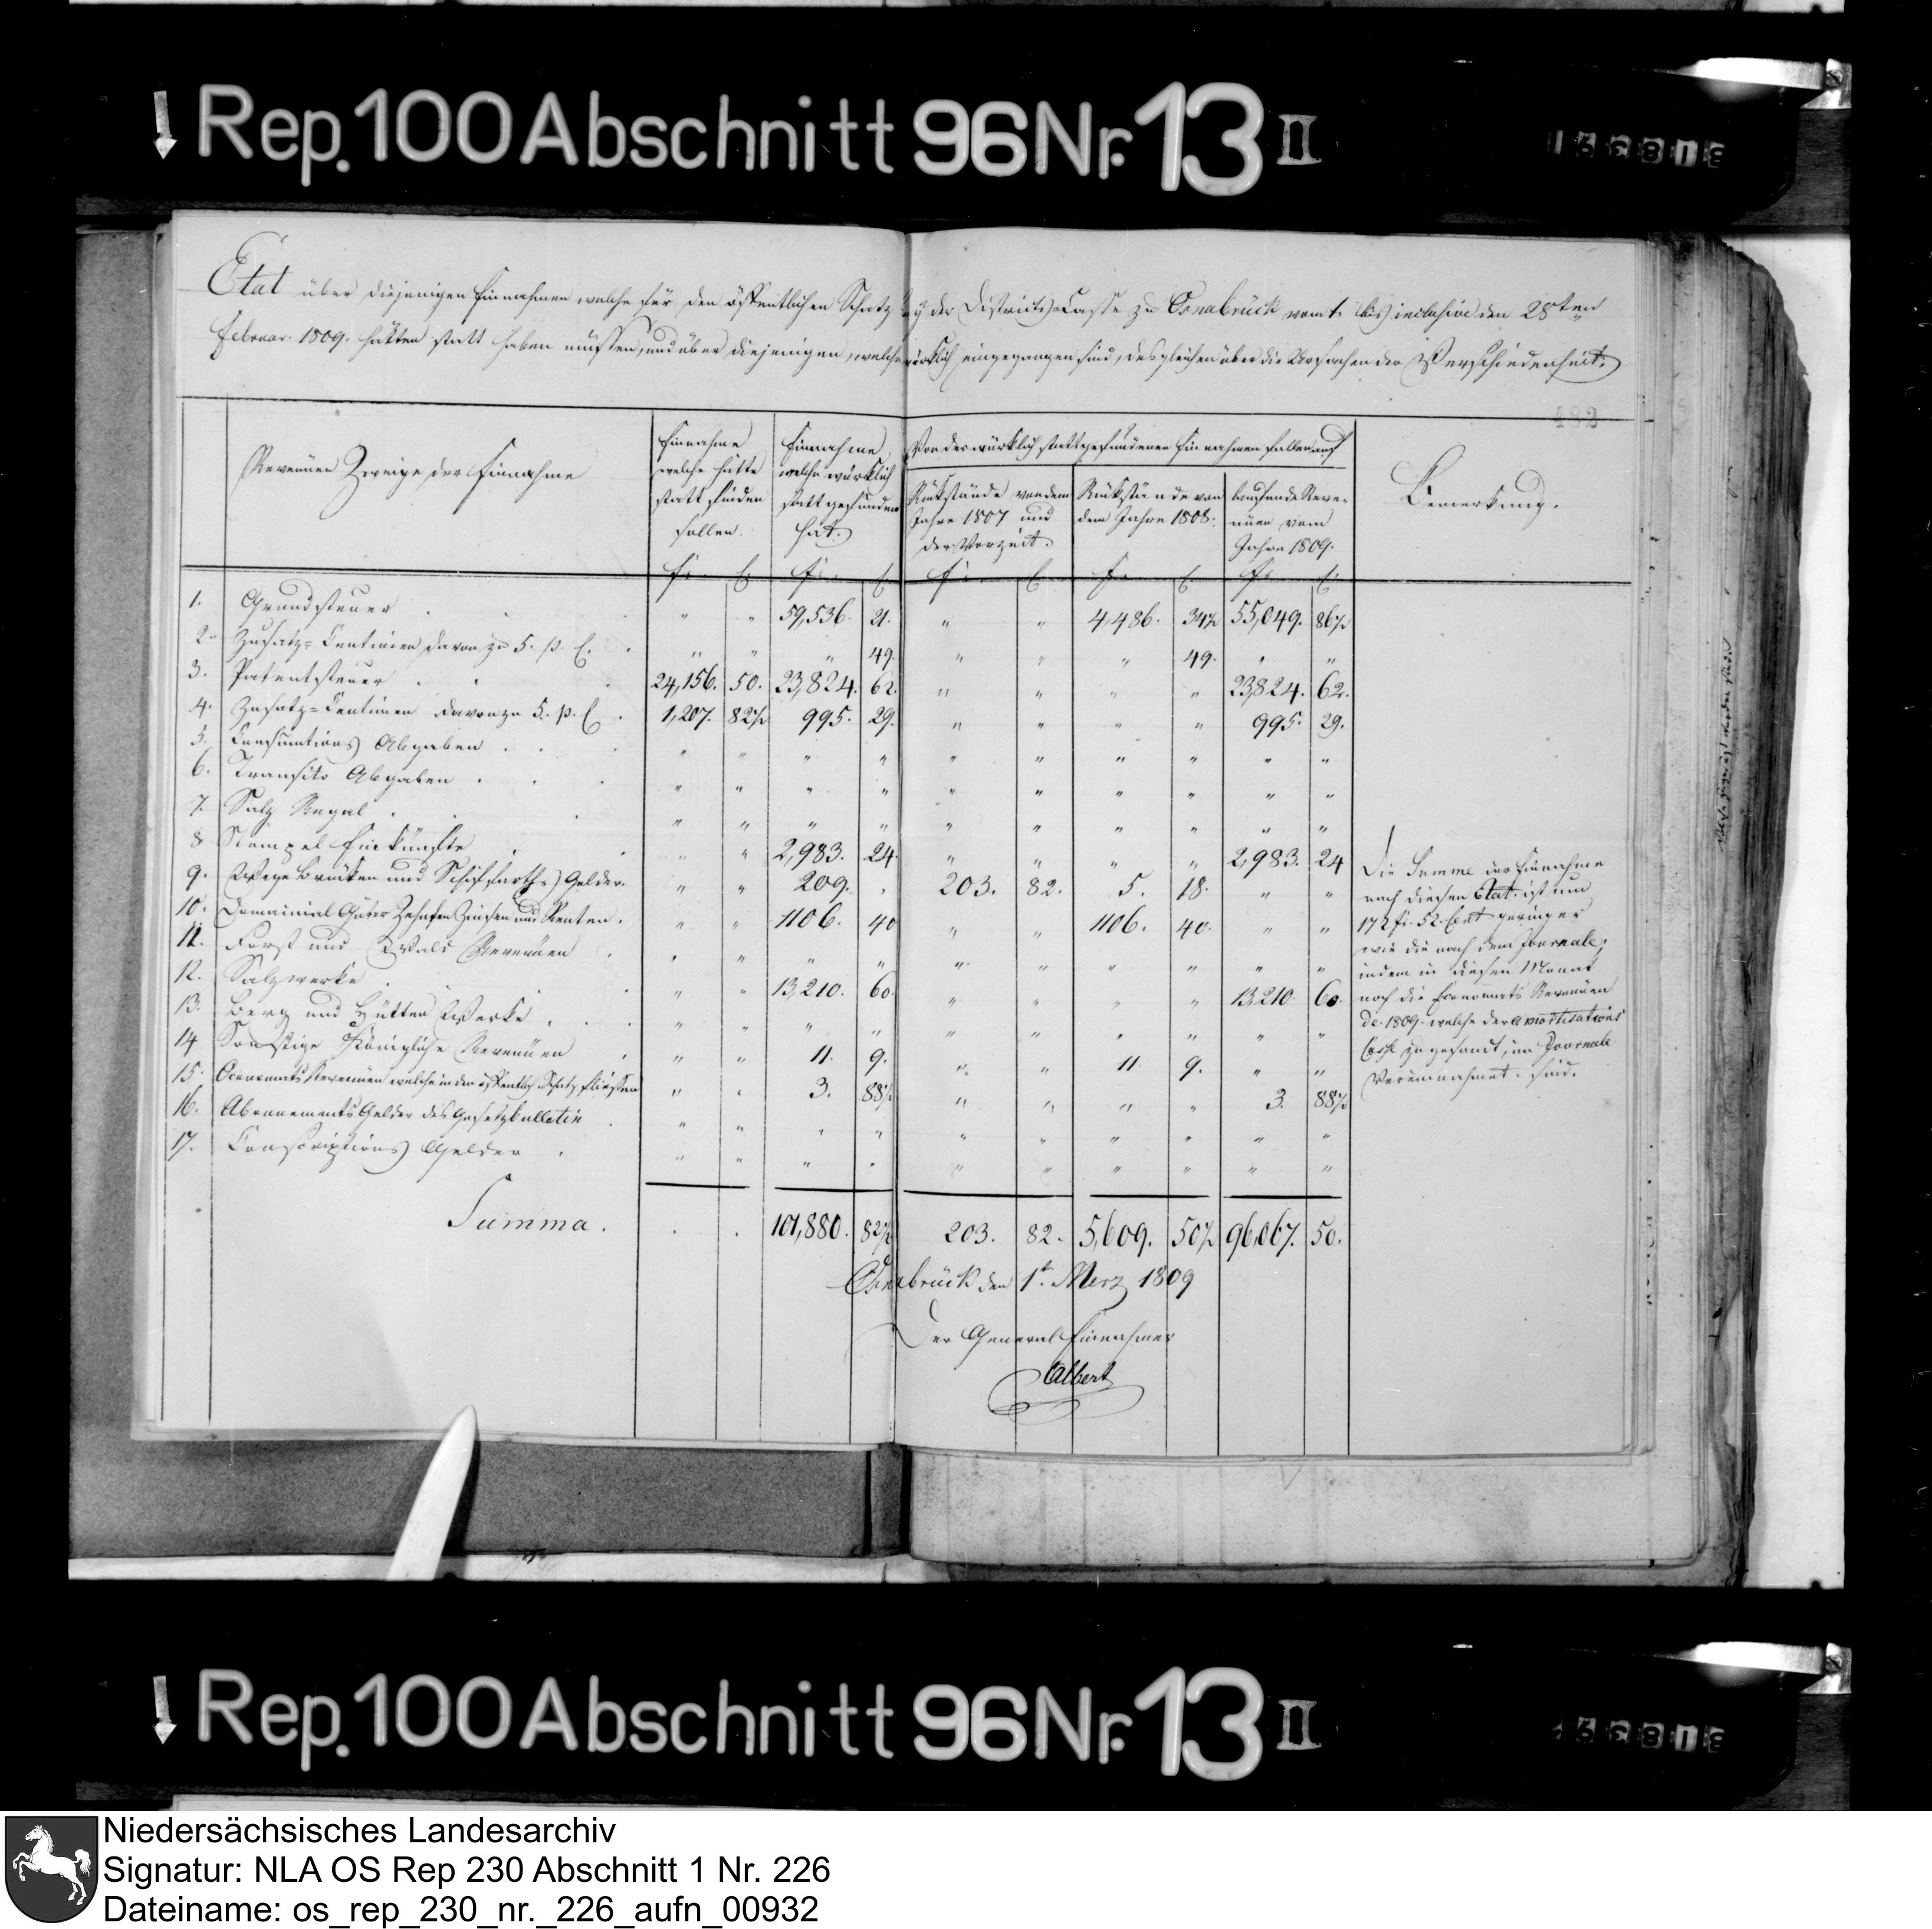 Rep. 100 Abschnitt 96 Nr. 13 II
Etat über diejenigen Einnahmen welche für den öffentlichen Schatz bey der Districts-Casse zu Osnabrück vom 1. bis inclusive den 28ten
Februar. 1809. hätten statt haben müssen, und über diejenigen, welche würklich eingegangen sind, desgleichen über die Ursachen der Verschiedenheit.
483
Revenüen Zweige der Einnahme
Einnahme welche hätte statt finden sollen.
Einnahme welche würklich statt gefunden hat.
Von der würklich stattgefundenen Einnahmen fallen auf
Rükstände von dem Jahre 1807 und der Vorzeit.
Rükstände von dem Jahre 1808.
laufende Revenüen vom Jahre 1809.
Bemerkung.
fr. C. fr. C. fr. C. fr. C. fr. C.
1. Grundsteuer . . " " 59,536. 21. " " 4,486. 34½ 55,049. 86½
2. Zusatz-Centimen davon zu 5. p. C. . " " " 49. " " " 49. " "
3. Patentsteuer . . 24,156. 50. 23,824. 62. " " " " 23,824. 62.
4. Zusatz-Centimen davon zu 5. p. C. . 1,207. 82½ 995. 29. " " " " 995. 29.
5. Consumtions Abgaben . . " " " " " " " " " "
6. Transito Abgaben . . . " " " " " " " " " "
7. Salz Regal . . . " " " " " " " " " "
8 Stempel Einkünfte . . " " 2,983. 24. " " " " 2,983. 24
9. Wege Brücken und Schiffarths Gelder. " " 209. . 203. 82. 5. 18. " "
10. Domainial Güter Zehnten Zinsen und Renten. " " 1106. 40 " " 1106. 40. " "
11. Forst und Wald Revenüen . " " " " " " " " " "
12. Salzwerke . . . " " 13,210. 60. " " " " 13,210. 60.
13. Berg und Hütten Werke . . . " " " " " " " " " "
14 Sonstige Königliche Revenüen . " " 11. 9. " " 11 9. " "
15. Oeconomats Revenüen welche in den öffentlich. Schatz fliessen " " 3. 88½ " " " " 3. 88½
16. Abonnements Gelder des Gesetzbulletin . " " " " " " " " " "
17. Conscriptions Gelder . " " " " " " " " " "
Summa. . . 101,880. 82½ 203. 82. 5,609. 50½ 96,067. 50.
Die Summe der Einnahme
nach diesem Etat. ist um
172 fr. 52. Cent geringer
wie die nach dem Journale;
indem in diesem Monat
noch die Economats Revenüen
de. 1809. welche der Amortisations
Casse zu gesandt, im Journale
Vereinnahmet. sind.
Osnabrück den 1t. Merz 1809
Der General Einnehmer
Albert
Rep. 100 Abschnitt 96 Nr. 13 II
Niedersächsisches Landesarchiv
Signatur: NLA OS Rep 230 Abschnitt 1 Nr. 226
Dateiname: os_rep_230_nr._226_aufn_00932